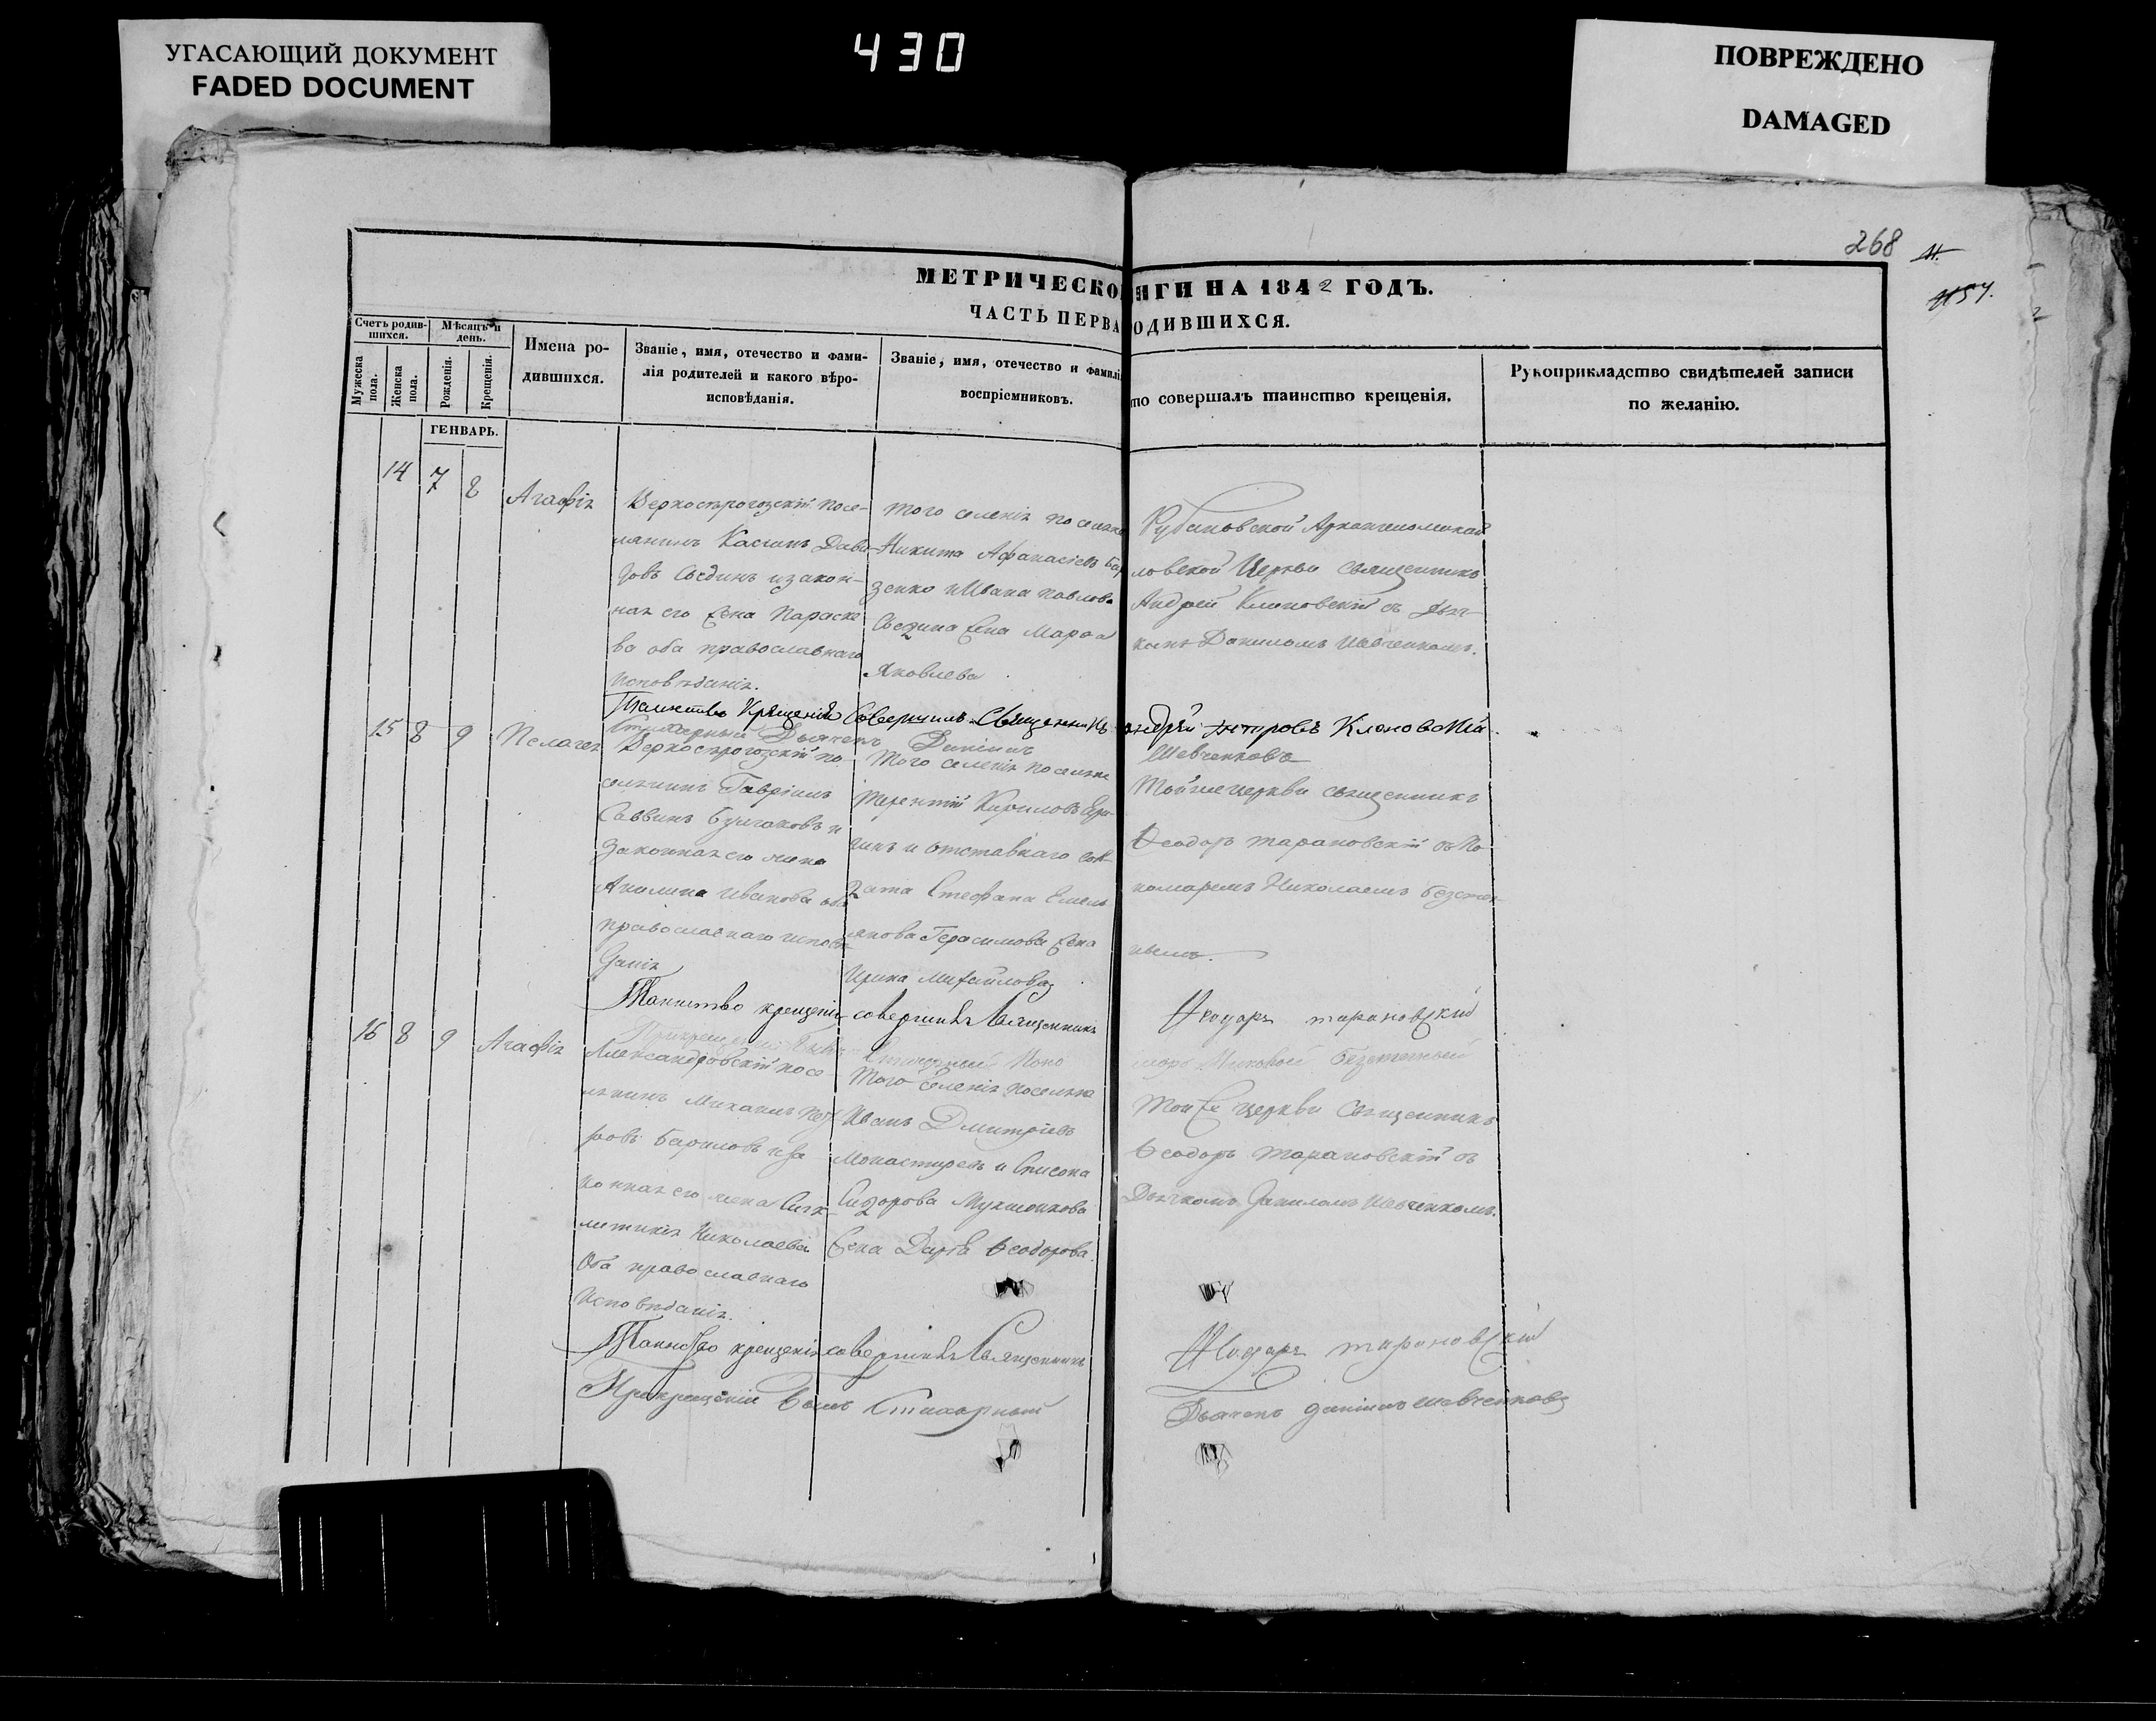 УГАСАЮЩИЙ ДОКУМЕНТ
FADED DOCUMENT
430
ПОВРЕЖДЕНО
DAMAGED
268
МЕТРИЧЕСКО ИГИ НА 1842 ГОДЪ.
ЧАСТЬ ПЕРВА ОДИВШИХСЯ.
Счетъ родив-
шихся.
Мужеска
пола.
Женска
пола.
Мѣсяцъ и
день.
Рожденія.
Крещенія.
Имена ро-
дившихся.
Званіе, имя, отечество и фами-
лія родителей и какого вѣро-
исповѣданія.
Званіе, имя, отечество и фамилі
воспріемниковъ.
то совершалъ таинство крещенія.
Рукоприкладство свидѣтелей записи
по желанію.
ГЕНВАРЬ.
14 7 8
Агафія
Верхосѣрогозскій посе-
лянинъ Касіянъ Дави-
довъ и закон-
ная его жена Параске
ва оба православнаго
исповѣданія.
Того селенія поселяне
Никита Афанасіевъ
зенко и Ивана Павлова
жена Марѳа
Яковлева
Рубановской Архангеломихай
ловской Церкви священникъ
Андрей Клоповскій съ дьяч-
комъ Даниломъ Шевченкомъ.
Таинство Крещенія Совершилъ Священникъ Андрей Петровъ
Стихарный Дьячекъ Даніилъ Шевченковъ
15 8 9
Пелагея
Верхосѣрогозскій по
селянинъ Гавріилъ
Саввинъ и
законная его жена
Акилина Иванова оба
православнаго исповѣ
данія
Того селенія поселяне
Терентій Кириловъ
и отставнаго сол-
дата Стефана Емель
янова Герасимова жена
Ирина Михайлова
Той же церкви священникъ
Ѳеодоръ Тарановскій съ по
номаремъ Николаемъ
Таинство крещенія совершилъ Священникъ Ѳеодоръ Тарановскій
Стихарный Поно
марь Николай
16 8 9
Агафія
Александровскій посе
лянинъ Михаилъ Пет
ровъ Бариловъ и за
конная его жена Сик
литикія Николаева
Оба православнаго
исповѣданія.
Того селенія поселяне
Иванъ Дмитріевъ
Монастыревъ и
Сидорова
жена Дарія Ѳеодорова
Той же церкви Священникъ
Ѳеодоръ Тарановскій съ
Дьячкомъ Даниломъ Шевченкомъ.
Таинство крещенія совершилъ Священникъ Ѳеодоръ Тарановскій
При крещеніи былъ Стихарный Дьячекъ Даніилъ Шевченковъ